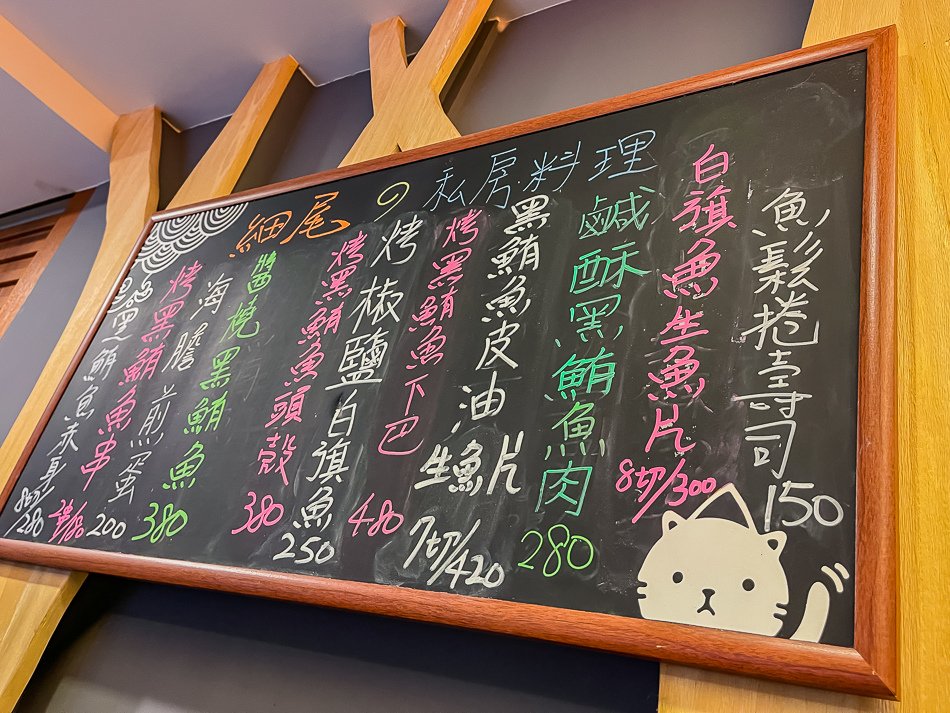 細尾の私房料理
魚鬆捲壽司 150
白旗魚生魚片 8切/300
鹹酥黑鮪魚肉 280
黑鮪魚皮油生魚片 7切/420
烤黑鮪魚下巴 480
烤椒鹽白旗魚 250
烤黑鮪魚頭殼 380
醬燒黑鮪魚 380
海膽煎蛋 200
烤黑鮪魚串
黑鮪魚赤身 8切/280